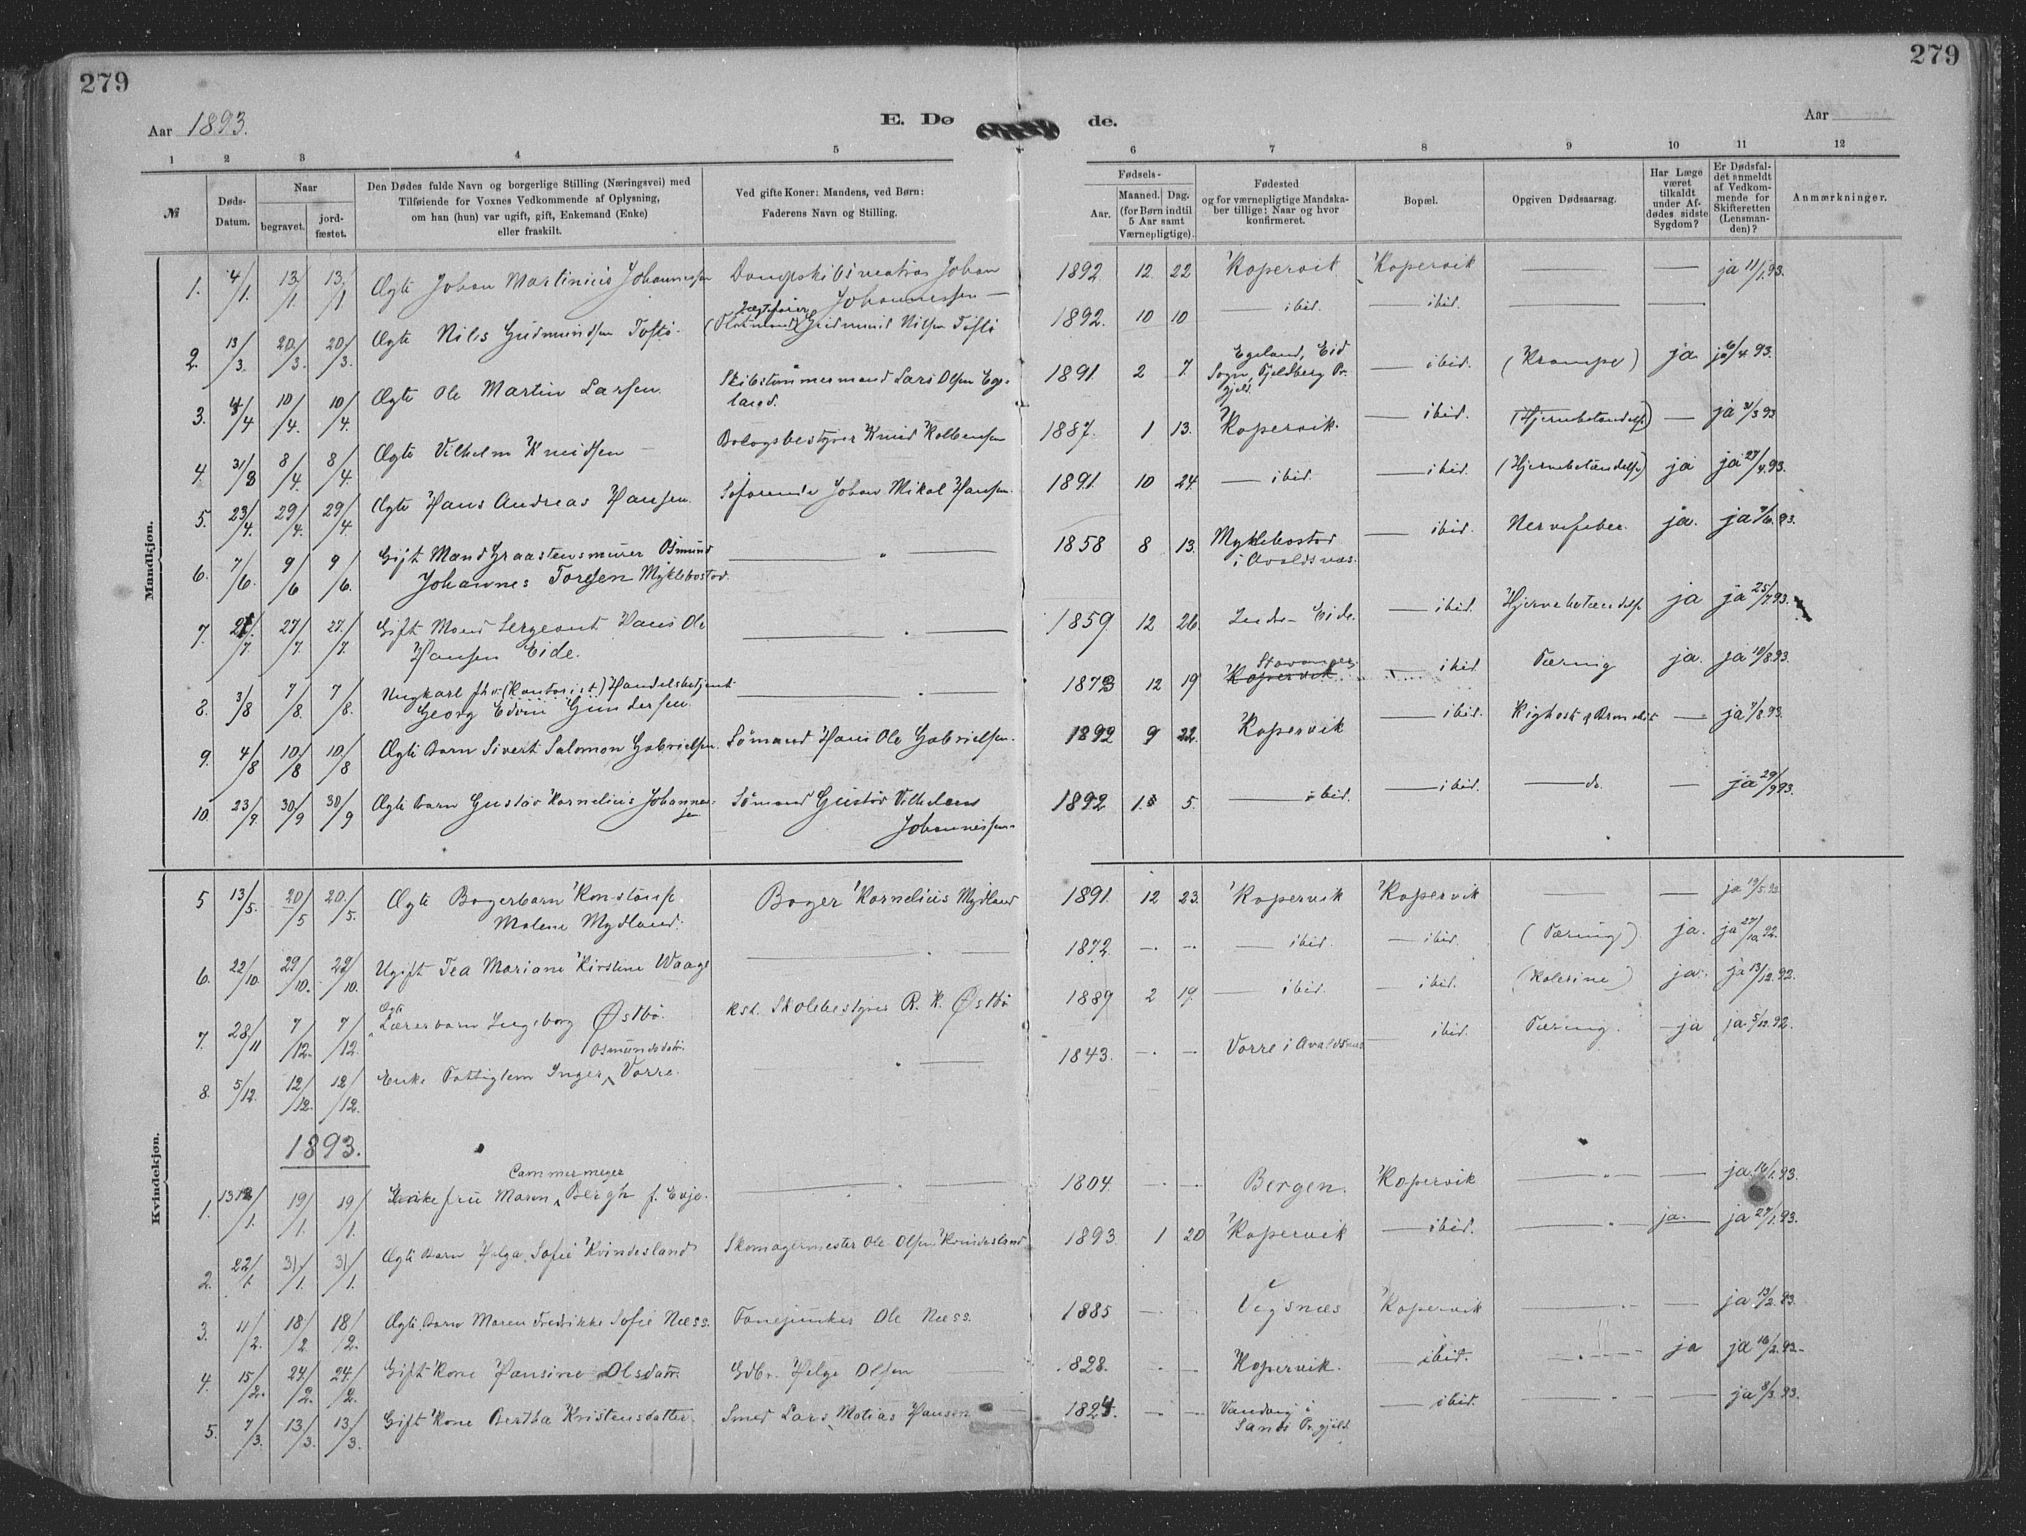 279
279
Aar 1893.
E. Dø
de.
Aar
1
2
3
4
5
6
7
8
9
10
11
12
№
Døds-
Datum.
Naar
begravet.
jord-
fæstet.
Den Dødes fulde Navn og borgerlige Stilling (Næringsvei) med
Tilføiende for Voxnes Vedkommende af Oplysning,
om han (hun) var ugift, gift, Enkemand (Enke)
eller fraskilt.
Ved gifte Koner: Mandens, ved Børn:
Faderens Navn og Stilling.
Fødsels-
Aar.
Maaned. Dag.
(for Børn indtil
5 Aar samt
Værnepligtige).
Fødested
og for værnepligtige Mandska-
ber tillige: Naar og hvor
konfirmeret.
Bopæl.
Opgiven Dødsaarsag.
Har Læge
været
tilkaldt
under Af-
dødes sidste
Sygdom?
Er Dødsfal-
det anmeldt
af Vedkom-
mende for
Skifteretten
(Lensman-
den)?
Anmærkninger.
Mandkjøn.
1. 4/1. 13/1 13/1 Ægte Johan Martinius Johannessen Dampskibsmatros Johan Johannessen 1892 12 22 Kopervik Kopervik ja 11/1.93.
2. 13/3. 20/3. 20/3. Ægte Nils Gudmundsen Toftø. Gudmund Nilsen Toftø 1892. 10 10 ibid. ibid.
3. 4/4 10/4. 10/4. Ægte Ole Martin Larsen. Skibstømmermand Lars Olsen Ege-
land. 1891. 2 7. Egeland, Eid
Sogn, Fjeldberg Pr.
gjeld. ibid. (Krampe) ja ja 6/4 93.
4. 31/3 8/4. 8/4. Ægte Vilhelm Knudsen Bolagsbestyrer Knud Kolbensen 1887. 1 13. Kopervik. ibid. (Hjernebetændelse) ja 31/3 93
5. 23/4. 29/4. 29/4. Ægte Hans Andreas Hansen. Søfarende Johan Mikal Hansen. 1891. 10 24. ibid. ibid. (Hjernebetændelse) ja ja 27/4.93.
6. 7/6. 9/6 9/6. Gift Mand Graastensmurer Osmund
Johannes Torsen Myklebostad. 1858 8 13. Myklebostad
i Avaldsnæs. ibid. Nervefeber. ja. ja 7/6.93.
7. 21/7. 27/7. 27/7. Gift Mand Sergeant Hans Ole
Hansen Eide. 1859 12 26. Eide. ibid. Hjernebetændelse ja ja 25/7.93.
8. 3/8 7/8. 7/8. Ungkarl fhv. (Kontorist) Handelsbetjent
Georg Edvin Gundersen. 1873 12 19 Stavanger.
Kopervik ibid. Tæring ja. ja 10/8 93.
9. 4/8 10/8 10/8 Ægte Barn Sivert Salomon Gabrielsen. Sømand Hans Ole Gabrielsen. 1892 9 22. Kopervik ibid. Kighoste ja 7/8.93.
10. 23/9. 30/9 30/9 Ægte Barn Gustav Kornelius Johannes-
sen Sømand Gustav Vilhelm
Johannessen. 1892 5. ibid. ibid. do. ja 29/9 93.
Kvindekjøn.
5 13/5. 20/5 20/5. Ægte Bagerbarn Konstanse
Malene Mydland. Bager Kornelius Mydland 1891. 12 23. Kopervik Kopervik ja 19/5.92.
6. 22/10. 29/10. 29/10. Ugift Tea Mariane Kirstine Waage 1872. ibid. ibid. (Tæring) ja. ja 27/10 92.
7. 28/11 7/12. 7/12. Ægte
Lærerbarn Ingeborg Østbø. Kst. Skolebestyrer R. K. Østbø 1889 2 19. ibid. ibid. ja. ja 13/12.92.
8. 5/12. 12/12. 12/12. Enke Fattiglem Inger Osmundsdatr. Vorre. 1843. Vorre i Avaldsnæs ibid. Tæring. ja ja 5/12.92.
1893.
1. 13/1. 19/1. 19/1. Enkefru Maren Cammermeyer Bergh f. Evje. 1804 Bergen. Kopervik ja 16/1.93.
2. 22/1. 31/1. 31/1. Ægte Barn Helga Sofie Kvindesland Skomagermester Ole Olsen Kvindesland 1893. 1 20 Kopervik ibid. ja. ja 27/1.93.
3. 11/2. 18/2 18/2. Ægte Barn Maren Fredrikke Sofie Næss. Fanejunker Ole Næss. 1885 Vigsnæs Kopervik ja 13/2.93.
4. 15/2. 24/2. 24/2. Gift Kone Hansine Olsdatr. Gdbr. Helge Olsen 1828. Kopervik. ibid. ja ja 16/2.93.
5. 7/3. 13/3. 13/3. Gift Kone Bertha Kristensdatter. Smed Lars Matias Hansen 1824. Vandvig i
Sands Pr.gjeld. ibid. ja 8/3.93.